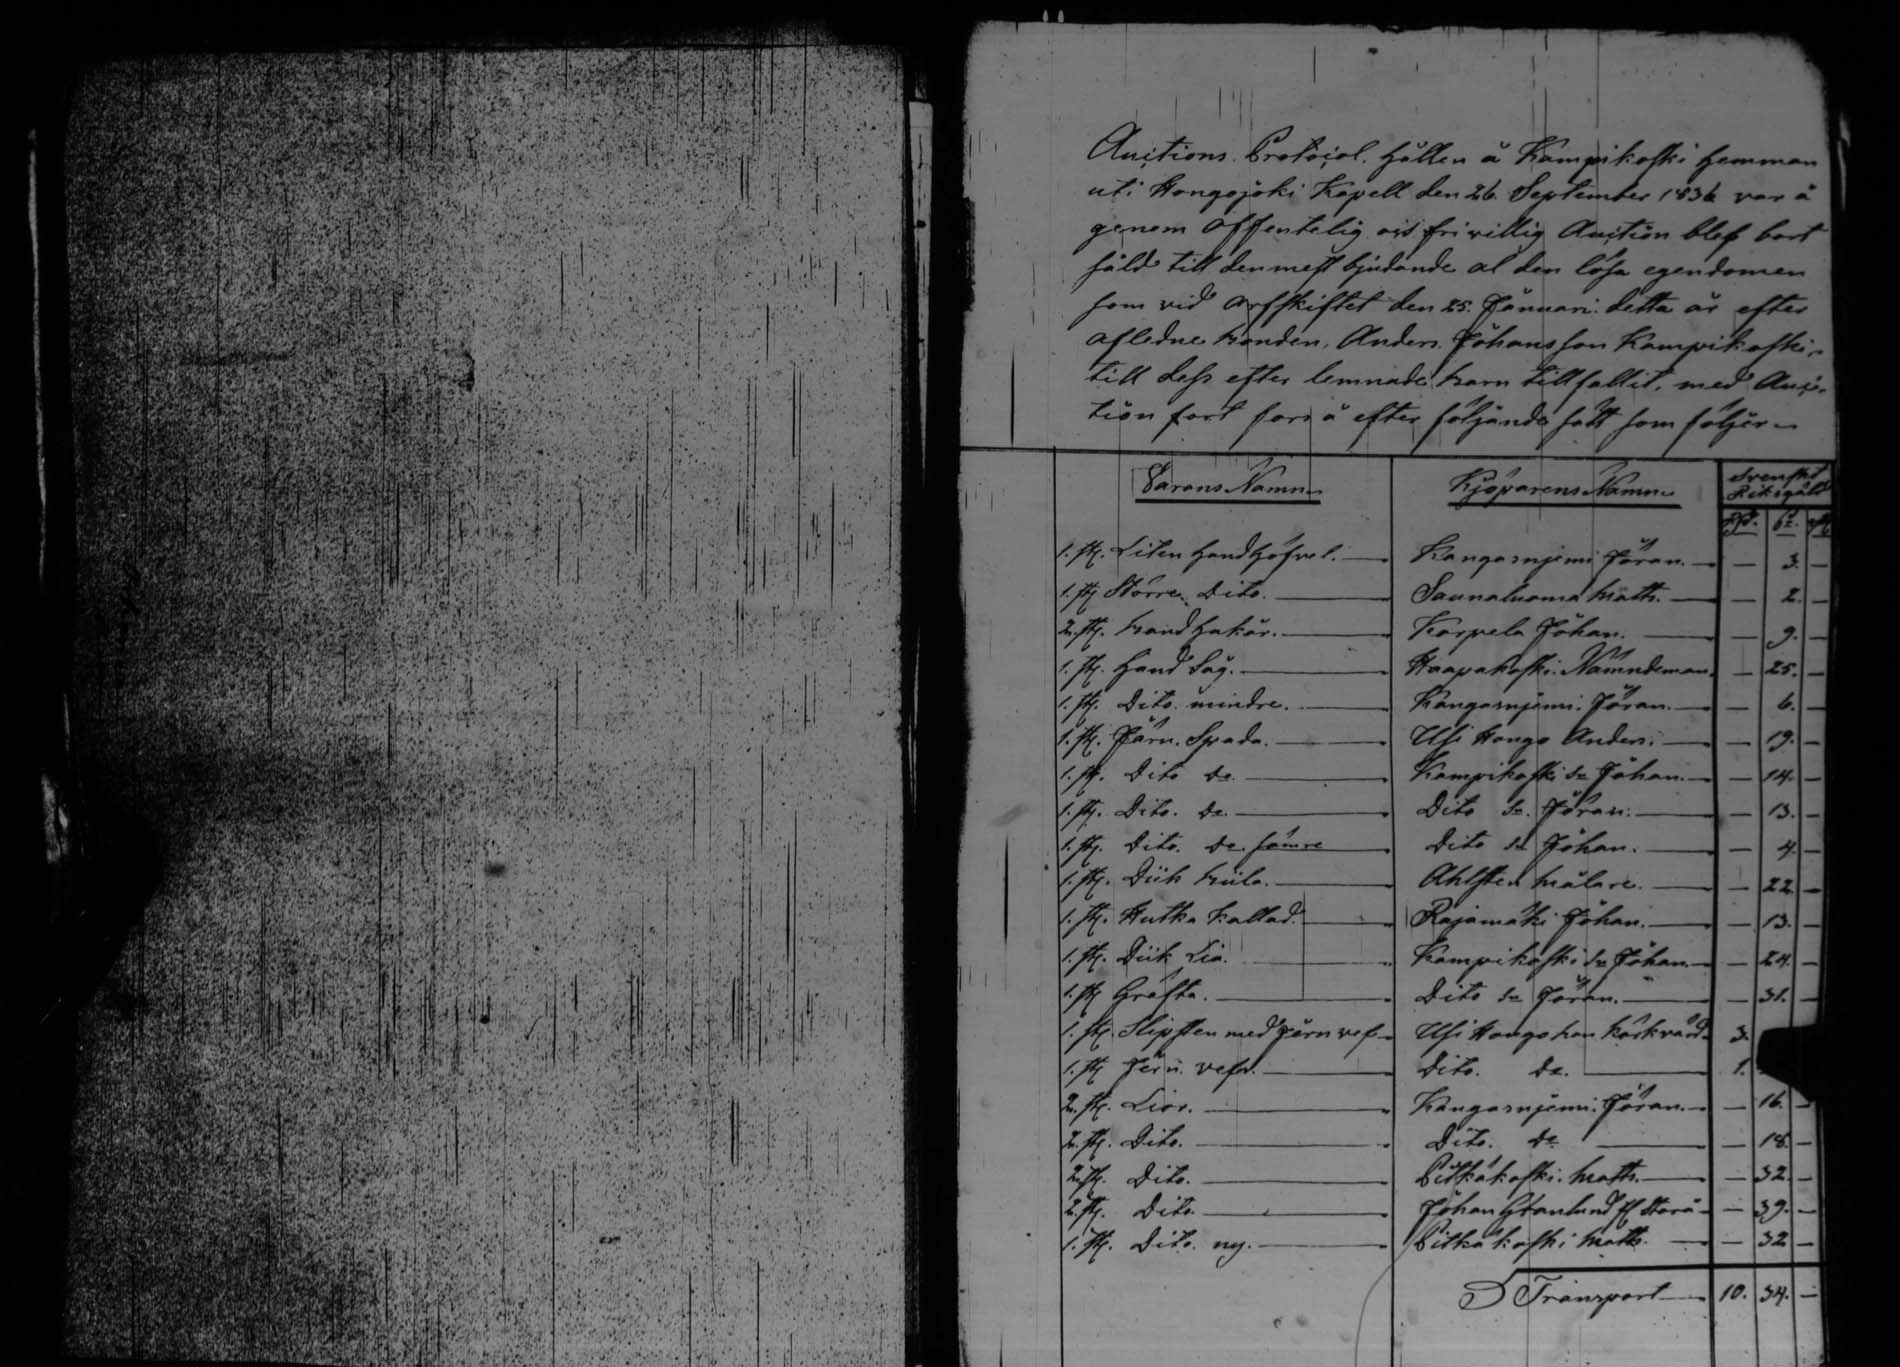 Auctions Protocol. hållen å Kampikoski hemman
uti Hongojoki Kapell den 26. September 1836 var å
genom offentelig och frivillig Auction blef bort
såld till den mest bjudande al den lösa egendomen
som vid arfskiftet den 25. Januari detta år efter
afledne bonden. Anders Johansson Kampikoski
till dess efter lemnade barn tillfallit. med Auc-
tion fort fors å efter följande sätt som följer
Varans Namn Kjöparens Namn Svenskt Riksgäld
Rd. sz. rst
1. st. Liten handhöfvel. Kangasnjemi Jöran. — 3. —
1. st. Större Dito. Saunaluoma Matts. — 2. —
2. st. bandhakar. Korpela Johan. — 9. —
1. st. hand Såg. Haapakoski Nämndeman. — 25. —
1. st. Dito mindre. Kangasnjemi Jöran. — 6. —
1. st. Järn Spada. Usi Hongo Anders. — 19. —
1. st. Dito do. Kampikoski sn Johan. — 14. —
1. st. Dito. do. Dito sn. Jöran. — 13. —
1. st. Dito. do. sämre Dito sn Johan. — 4. —
1. st. Diik Ahlsten Målare. — 22 —
1. st. Kutka kallad. Rajamäki Johan. — 13. —
1. st. Diik Lia. Kampikoski sn Johan. — 24. —
1. st. Gräfta. Dito sn Jöran. — 31. —
1. st. Slipsten med Jern vef Usi Hongo 3.
1. st. Jern vef. Dito. do. 1.
2. st. Lior. Kangasnjemi Jöran. — 16. —
2. st. Dito. Dito. do — 18. —
2. st. Dito. Pitkäkoski Matts. — 32. —
2. st. Dito. Johan Granlund Storå — 39. —
1. st. Dito. ny. Pitkäkoski Matts. — 32 —
Transport 10. 34. —